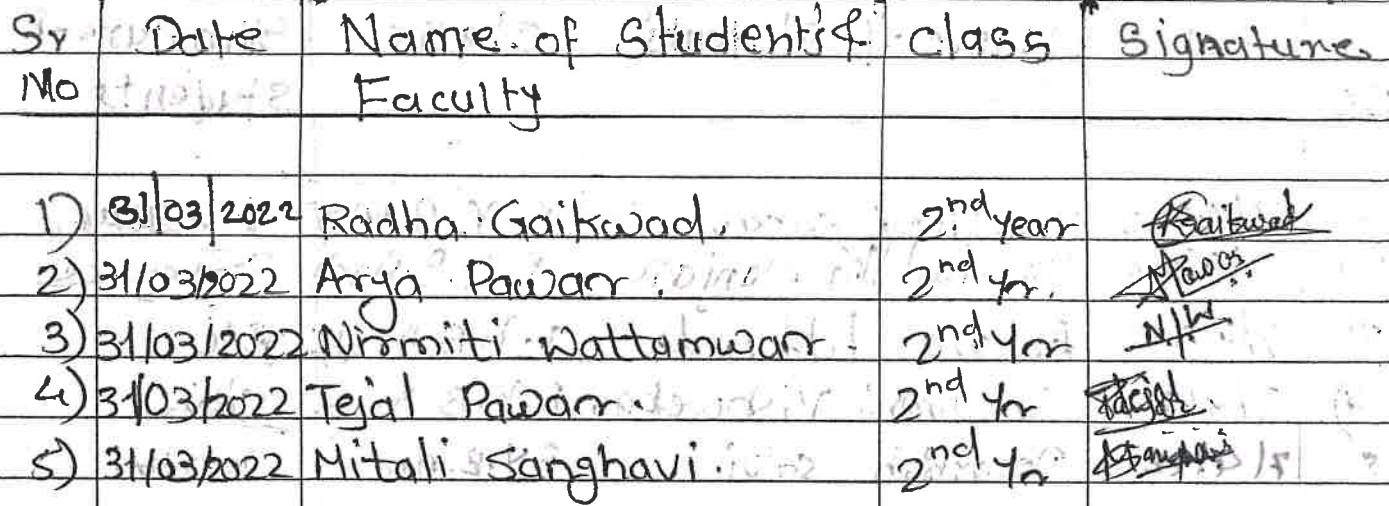 Sr Date Name of Student's & class Signature
No Faculty
1) 31/03/2022 Radha Gaikwad. 2nd year Gaikwad
2) 31/03/2022 Arya Pawar. 2nd yr. Pawar
3) 31/03/2022 Nirmiti Wattamwar. 2nd yr N/W
4) 31/03/2022 Tejal Pawar. 2nd yr
5) 31/03/2022 Mitali Sanghavi. 2nd yr